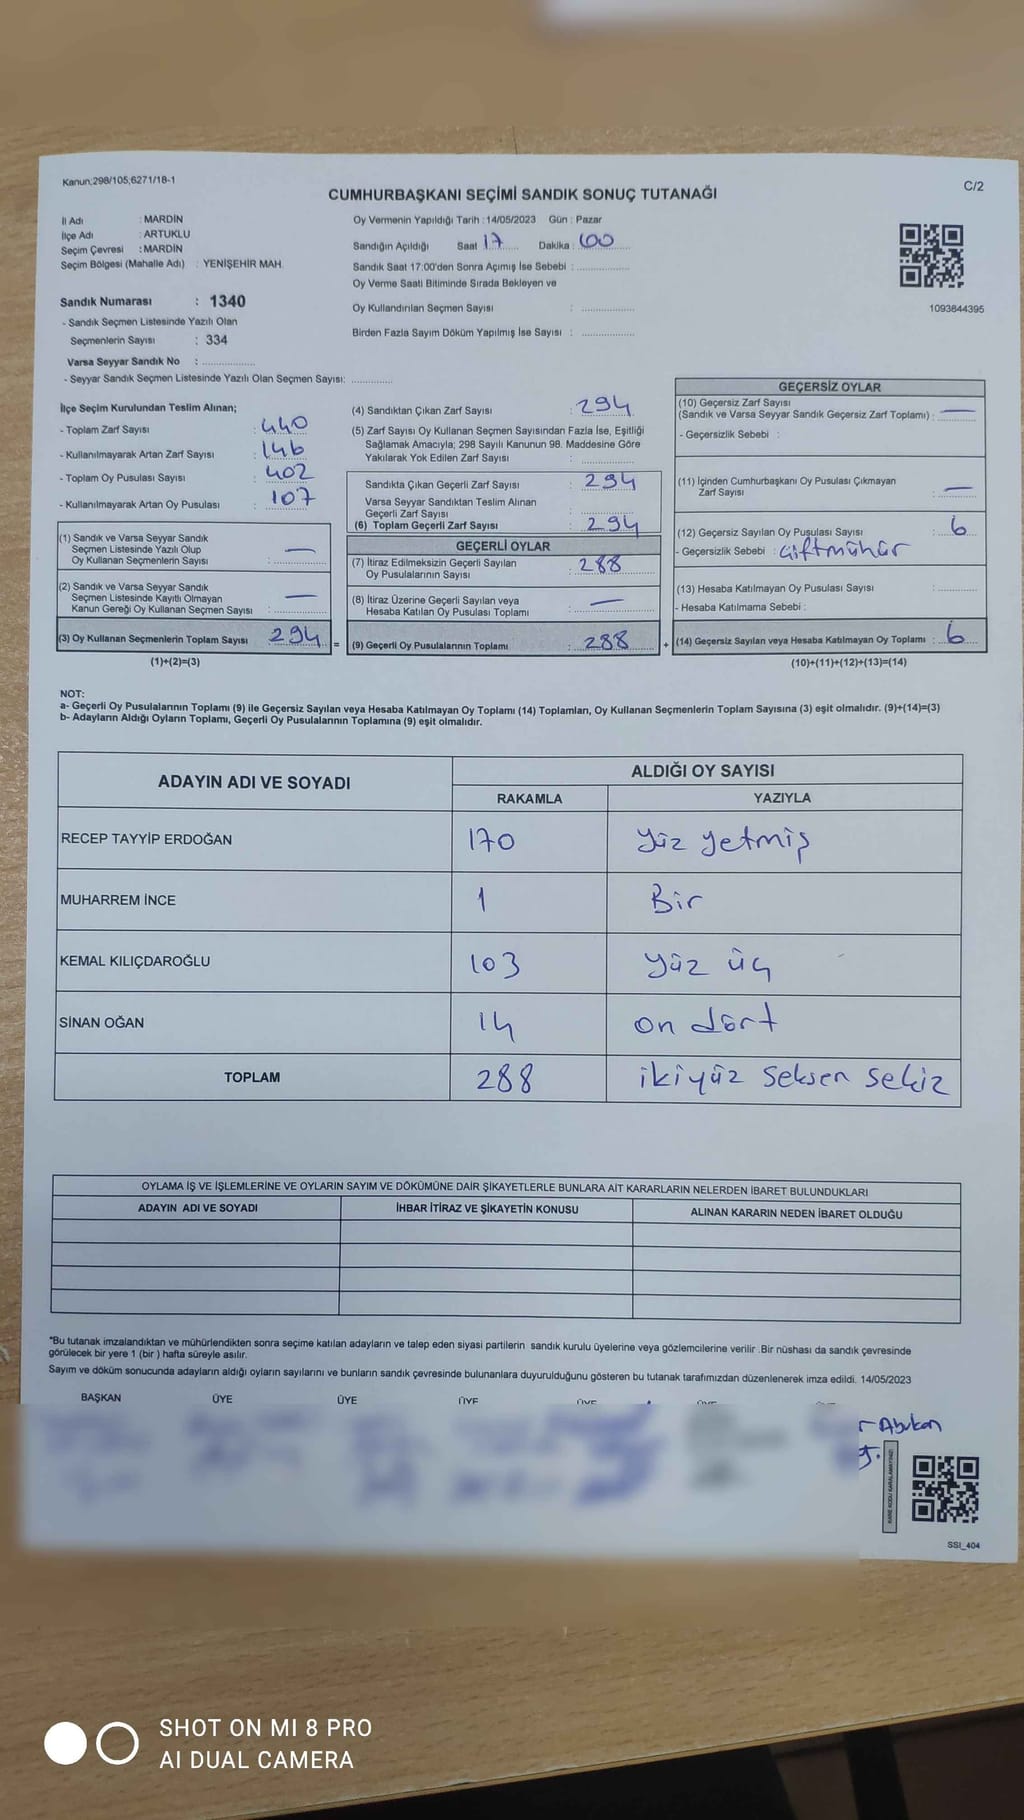 Kanun;298/105;6271/18-1
C/2
CUMHURBAŞKANI SEÇİMİ SANDIK SONUÇ TUTANAĞI
İl Adı : MARDİN
İlçe Adı : ARTUKLU
Seçim Çevresi : MARDİN
Seçim Bölgesi (Mahalle Adı) : YENİŞEHİR MAH.
Oy Vermenin Yapıldığı Tarih : 14/05/2023 Gün : Pazar
Sandığın Açıldığı Saat 17 Dakika : 00
Sandık Saat 17:00'den Sonra Açımış İse Sebebi :
Oy Verme Saati Bitiminde Sırada Bekleyen ve
Oy Kullandırılan Seçmen Sayısı :
Birden Fazla Sayım Döküm Yapılmış İse Sayısı :
1093844395
Sandık Numarası : 1340
- Sandık Seçmen Listesinde Yazılı Olan
Seçmenlerin Sayısı : 334
Varsa Seyyar Sandık No :
- Seyyar Sandık Seçmen Listesinde Yazılı Olan Seçmen Sayısı:
İlçe Seçim Kurulundan Teslim Alınan;
- Toplam Zarf Sayısı : 440
- Kullanılmayarak Artan Zarf Sayısı : 146
- Toplam Oy Pusulası Sayısı : 402
- Kullanılmayarak Artan Oy Pusulası : 107
(1) Sandık ve Varsa Seyyar Sandık
Seçmen Listesinde Yazılı Olup
Oy Kullanan Seçmenlerin Sayısı : —
(2) Sandık ve Varsa Seyyar Sandık
Seçmen Listesinde Kayıtlı Olmayan
Kanun Gereği Oy Kullanan Seçmen Sayısı : —
(3) Oy Kullanan Seçmenlerin Toplam Sayısı 294 =
(1)+(2)=(3)
(4) Sandıktan Çıkan Zarf Sayısı : 294
(5) Zarf Sayısı Oy Kullanan Seçmen Sayısından Fazla İse, Eşitliği
Sağlamak Amacıyla; 298 Sayılı Kanunun 98. Maddesine Göre
Yakılarak Yok Edilen Zarf Sayısı :
Sandıkta Çıkan Geçerli Zarf Sayısı : 294
Varsa Seyyar Sandıktan Teslim Alınan
Geçerli Zarf Sayısı :
(6) Toplam Geçerli Zarf Sayısı : 294
GEÇERLİ OYLAR
(7) İtiraz Edilmeksizin Geçerli Sayılan
Oy Pusulalarının Sayısı : 288
(8) İtiraz Üzerine Geçerli Sayılan veya
Hesaba Katılan Oy Pusulası Toplamı : —
(9) Geçerli Oy Pusulalarının Toplamı : 288 +
GEÇERSİZ OYLAR
(10) Geçersiz Zarf Sayısı
(Sandık ve Varsa Seyyar Sandık Geçersiz Zarf Toplamı) : —
- Geçersizlik Sebebi :
(11) İçinden Cumhurbaşkanı Oy Pusulası Çıkmayan
Zarf Sayısı : —
(12) Geçersiz Sayılan Oy Pusulası Sayısı : 6
- Geçersizlik Sebebi : Çiftmühür
(13) Hesaba Katılmayan Oy Pusulası Sayısı :
- Hesaba Katılmama Sebebi :
(14) Geçersiz Sayılan veya Hesaba Katılmayan Oy Toplamı : 6
(10)+(11)+(12)+(13)=(14)
NOT:
a- Geçerli Oy Pusulalarının Toplamı (9) ile Geçersiz Sayılan veya Hesaba Katılmayan Oy Toplamı (14) Toplamları, Oy Kullanan Seçmenlerin Toplam Sayısına (3) eşit olmalıdır. (9)+(14)=(3)
b- Adayların Aldığı Oyların Toplamı, Geçerli Oy Pusulalarının Toplamına (9) eşit olmalıdır.
ADAYIN ADI VE SOYADI ALDIĞI OY SAYISI
RAKAMLA YAZIYLA
RECEP TAYYİP ERDOĞAN 170 yüz yetmiş
MUHARREM İNCE 1 Bir
KEMAL KILIÇDAROĞLU 103 yüz üç
SİNAN OĞAN 14 on dört
TOPLAM 288 ikiyüz Seksen Sekiz
OYLAMA İŞ VE İŞLEMLERİNE VE OYLARIN SAYIM VE DÖKÜMÜNE DAİR ŞİKAYETLERLE BUNLARA AİT KARARLARIN NELERDEN İBARET BULUNDUKLARI
ADAYIN ADI VE SOYADI İHBAR İTİRAZ VE ŞİKAYETİN KONUSU ALINAN KARARIN NEDEN İBARET OLDUĞU
*Bu tutanak imzalandıktan ve mühürlendikten sonra seçime katılan adayların ve talep eden siyasi partilerin sandık kurulu üyelerine veya gözlemcilerine verilir .Bir nüshası da sandık çevresinde
görülecek bir yere 1 (bir ) hafta süreyle asılır.
Sayım ve döküm sonucunda adayların aldığı oyların sayılarını ve bunların sandık çevresinde bulunanlara duyurulduğunu gösteren bu tutanak tarafımızdan düzenlenerek imza edildi. 14/05/2023
BAŞKAN ÜYE ÜYE ÜYE ÜYE ÜYE
r Abukan
KARE KODU KARALAMAYINIZ!
SSI_404
SHOT ON MI 8 PRO
AI DUAL CAMERA